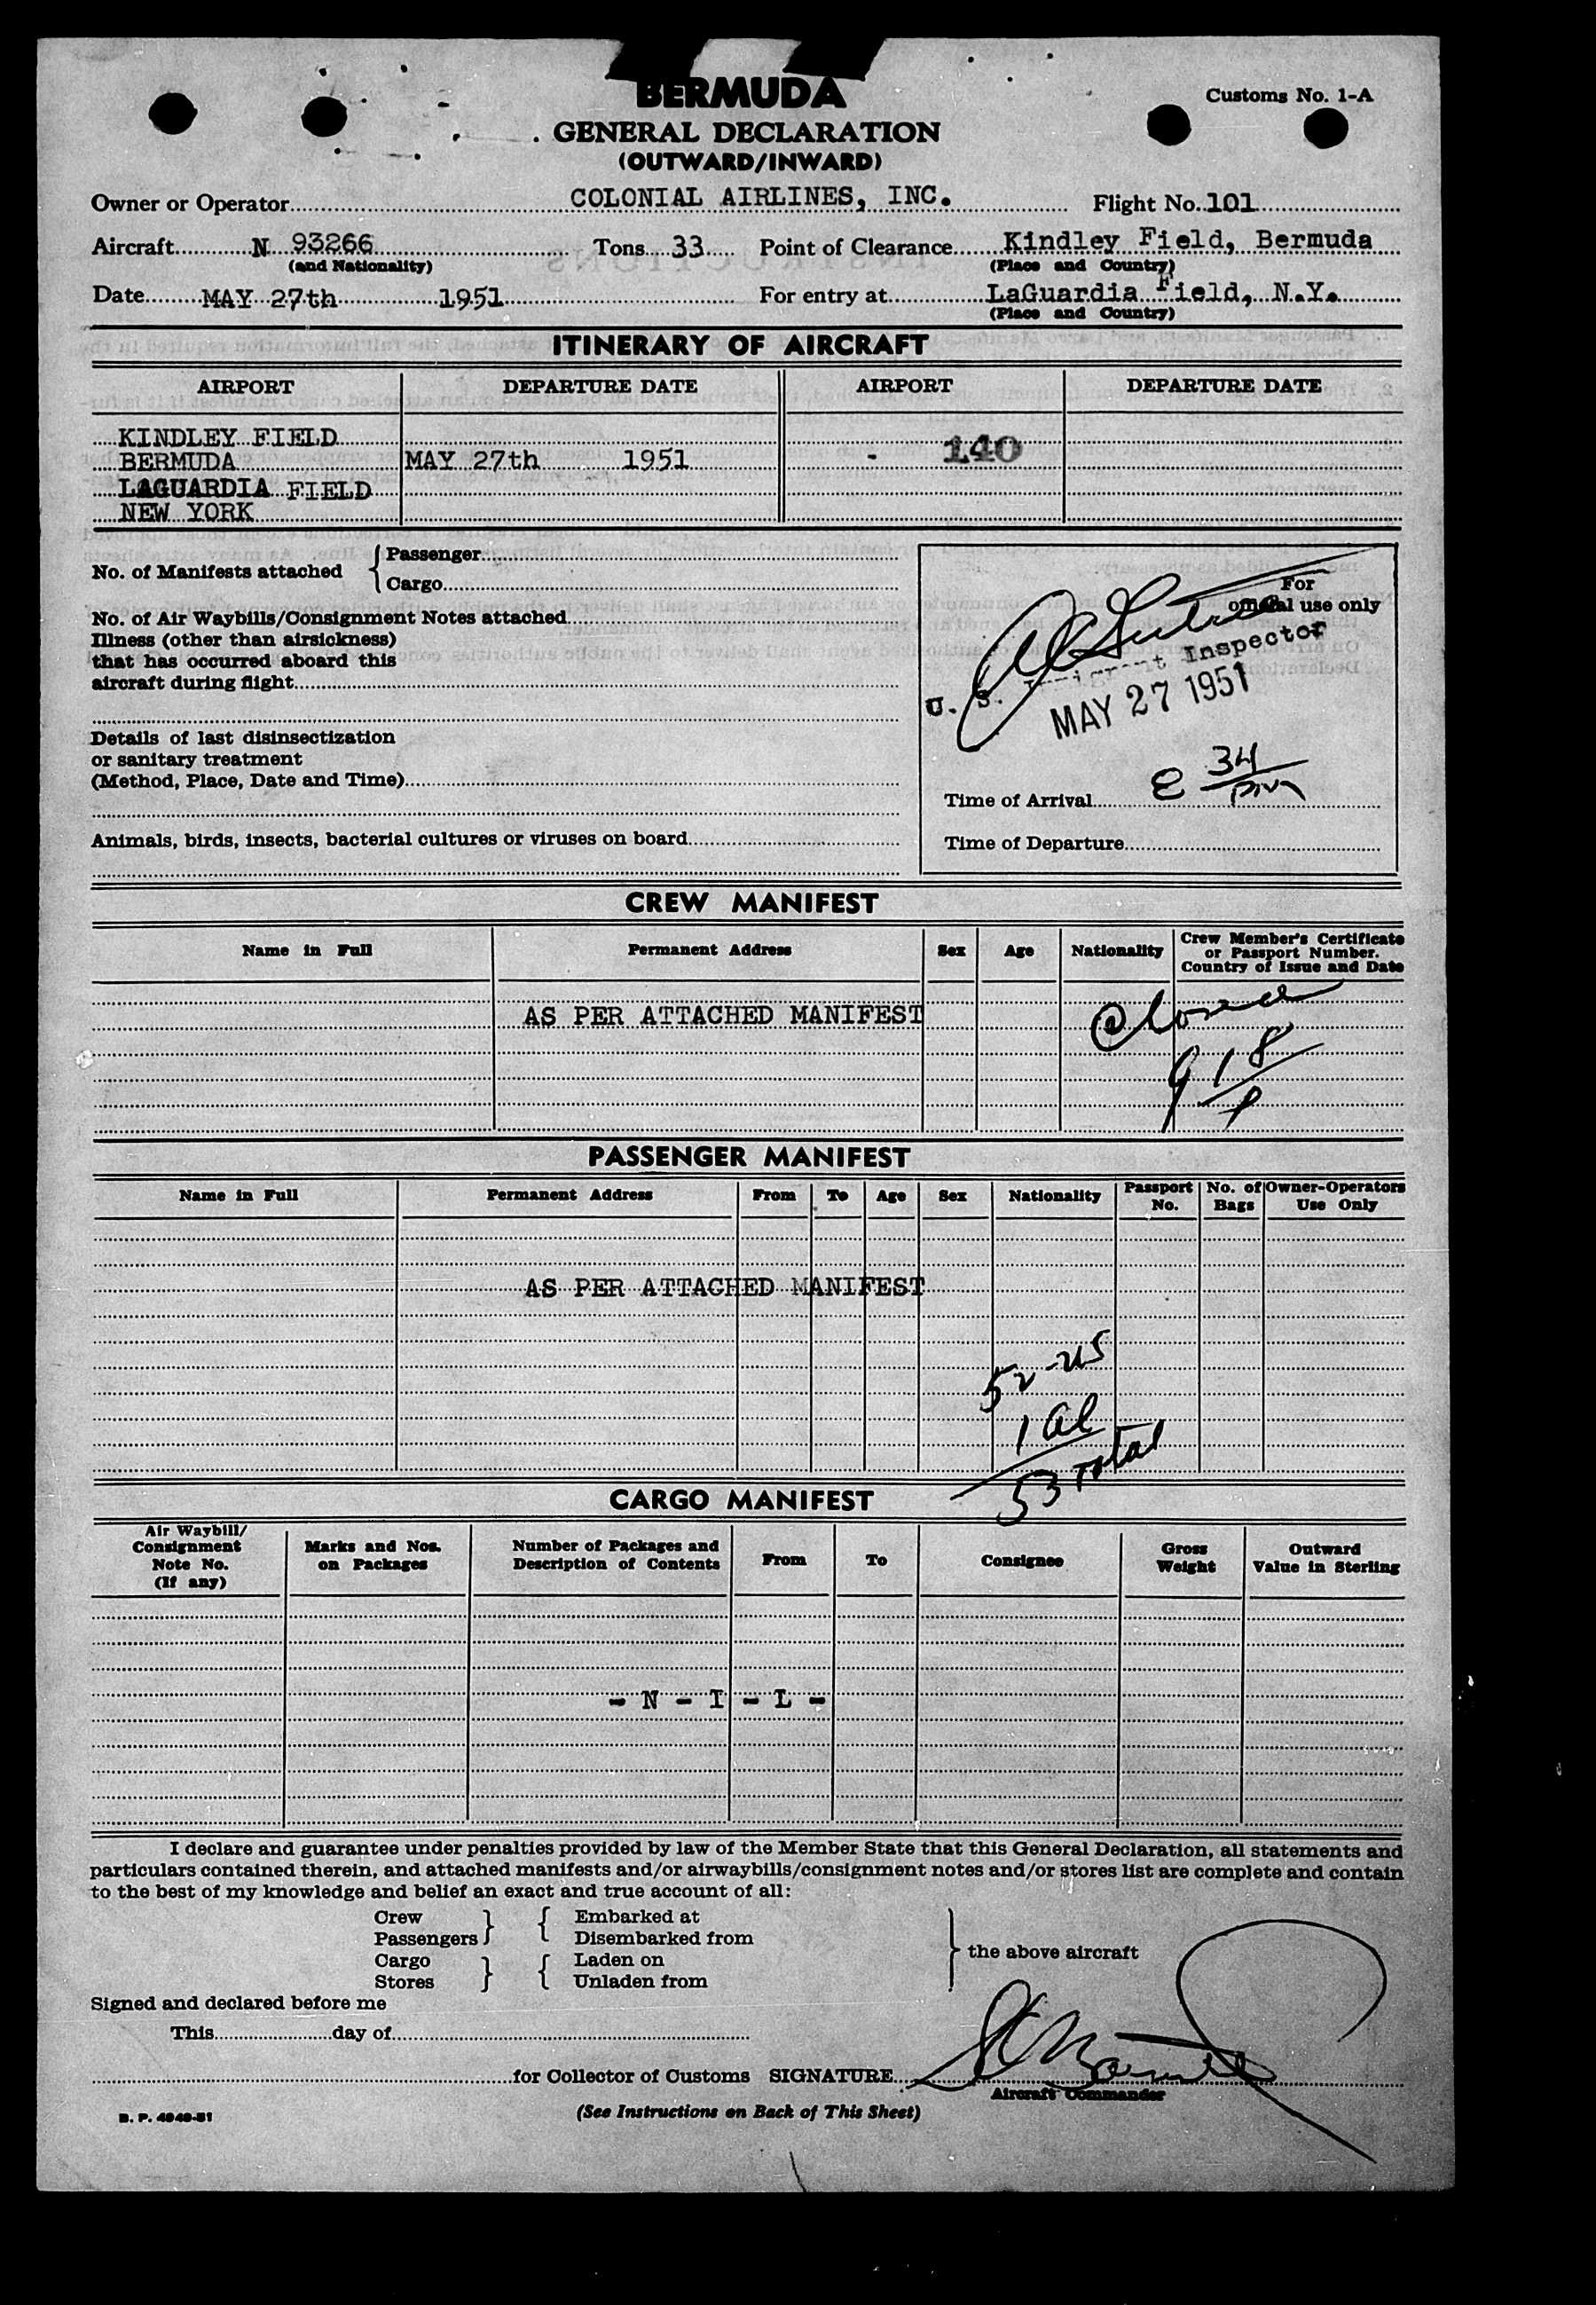 BERMUDA
Customs No. 1-A
GENERAL DECLARATION
(OUTWARD/INWARD)
Owner or Operator COLONIAL AIRLINES, INC. Flight No. 101
Aircraft N 93266 Tons 33 Point of Clearance Kindley Field, Bermuda
(and Nationality) (Place and Country)
Date MAY 27th 1951 For entry at LaGuardia Field, N.Y.
(Place and Country)
ITINERARY OF AIRCRAFT
AIRPORT DEPARTURE DATE AIRPORT DEPARTURE DATE
KINDLEY FIELD
BERMUDA MAY 27th 1951 - 140
LAGUARDIA FIELD
NEW YORK
No. of Manifests attached { Passenger
Cargo
No. of Air Waybills/Consignment Notes attached
Illness (other than airsickness)
that has occurred aboard this
aircraft during flight
Details of last disinsectization
or sanitary treatment
(Method, Place, Date and Time)
Animals, birds, insects, bacterial cultures or viruses on board
For
official use only
U. S. Immigrant Inspector
MAY 27 1951
Time of Arrival 8 34/pm
Time of Departure
CREW MANIFEST
Name in Full Permanent Address Sex Age Nationality Crew Member's Certificate
or Passport Number.
Country of Issue and Date
AS PER ATTACHED MANIFEST
9 18/P
PASSENGER MANIFEST
Name in Full Permanent Address From To Age Sex Nationality Passport No. No. of Bags Owner-Operators Use Only
AS PER ATTACHED MANIFEST
52-US
1 al
53 Total
CARGO MANIFEST
Air Waybill/
Consignment
Note No.
(If any)
Marks and Nos.
on Packages
Number of Packages and
Description of Contents
From
To
Consignee
Gross
Weight
Outward
Value in Sterling
- N - I - L -
I declare and guarantee under penalties provided by law of the Member State that this General Declaration, all statements and
particulars contained therein, and attached manifests and/or airwaybills/consignment notes and/or stores list are complete and contain
to the best of my knowledge and belief an exact and true account of all:
Crew } { Embarked at
Passengers Disembarked from
Cargo } { Laden on
Stores Unladen from
} the above aircraft
Signed and declared before me
This day of
for Collector of Customs SIGNATURE
Aircraft Commander
B. P. 4040-51
(See Instructions on Back of This Sheet)